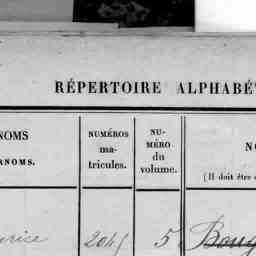 RÉPERTOIRE ALPHABÉ
NOMS
RNOMS.
NUMÉROS
ma-
tricules.
NU-
MÉRO
du
volume.
N
(Il doit être
urice 2045 5 Boug